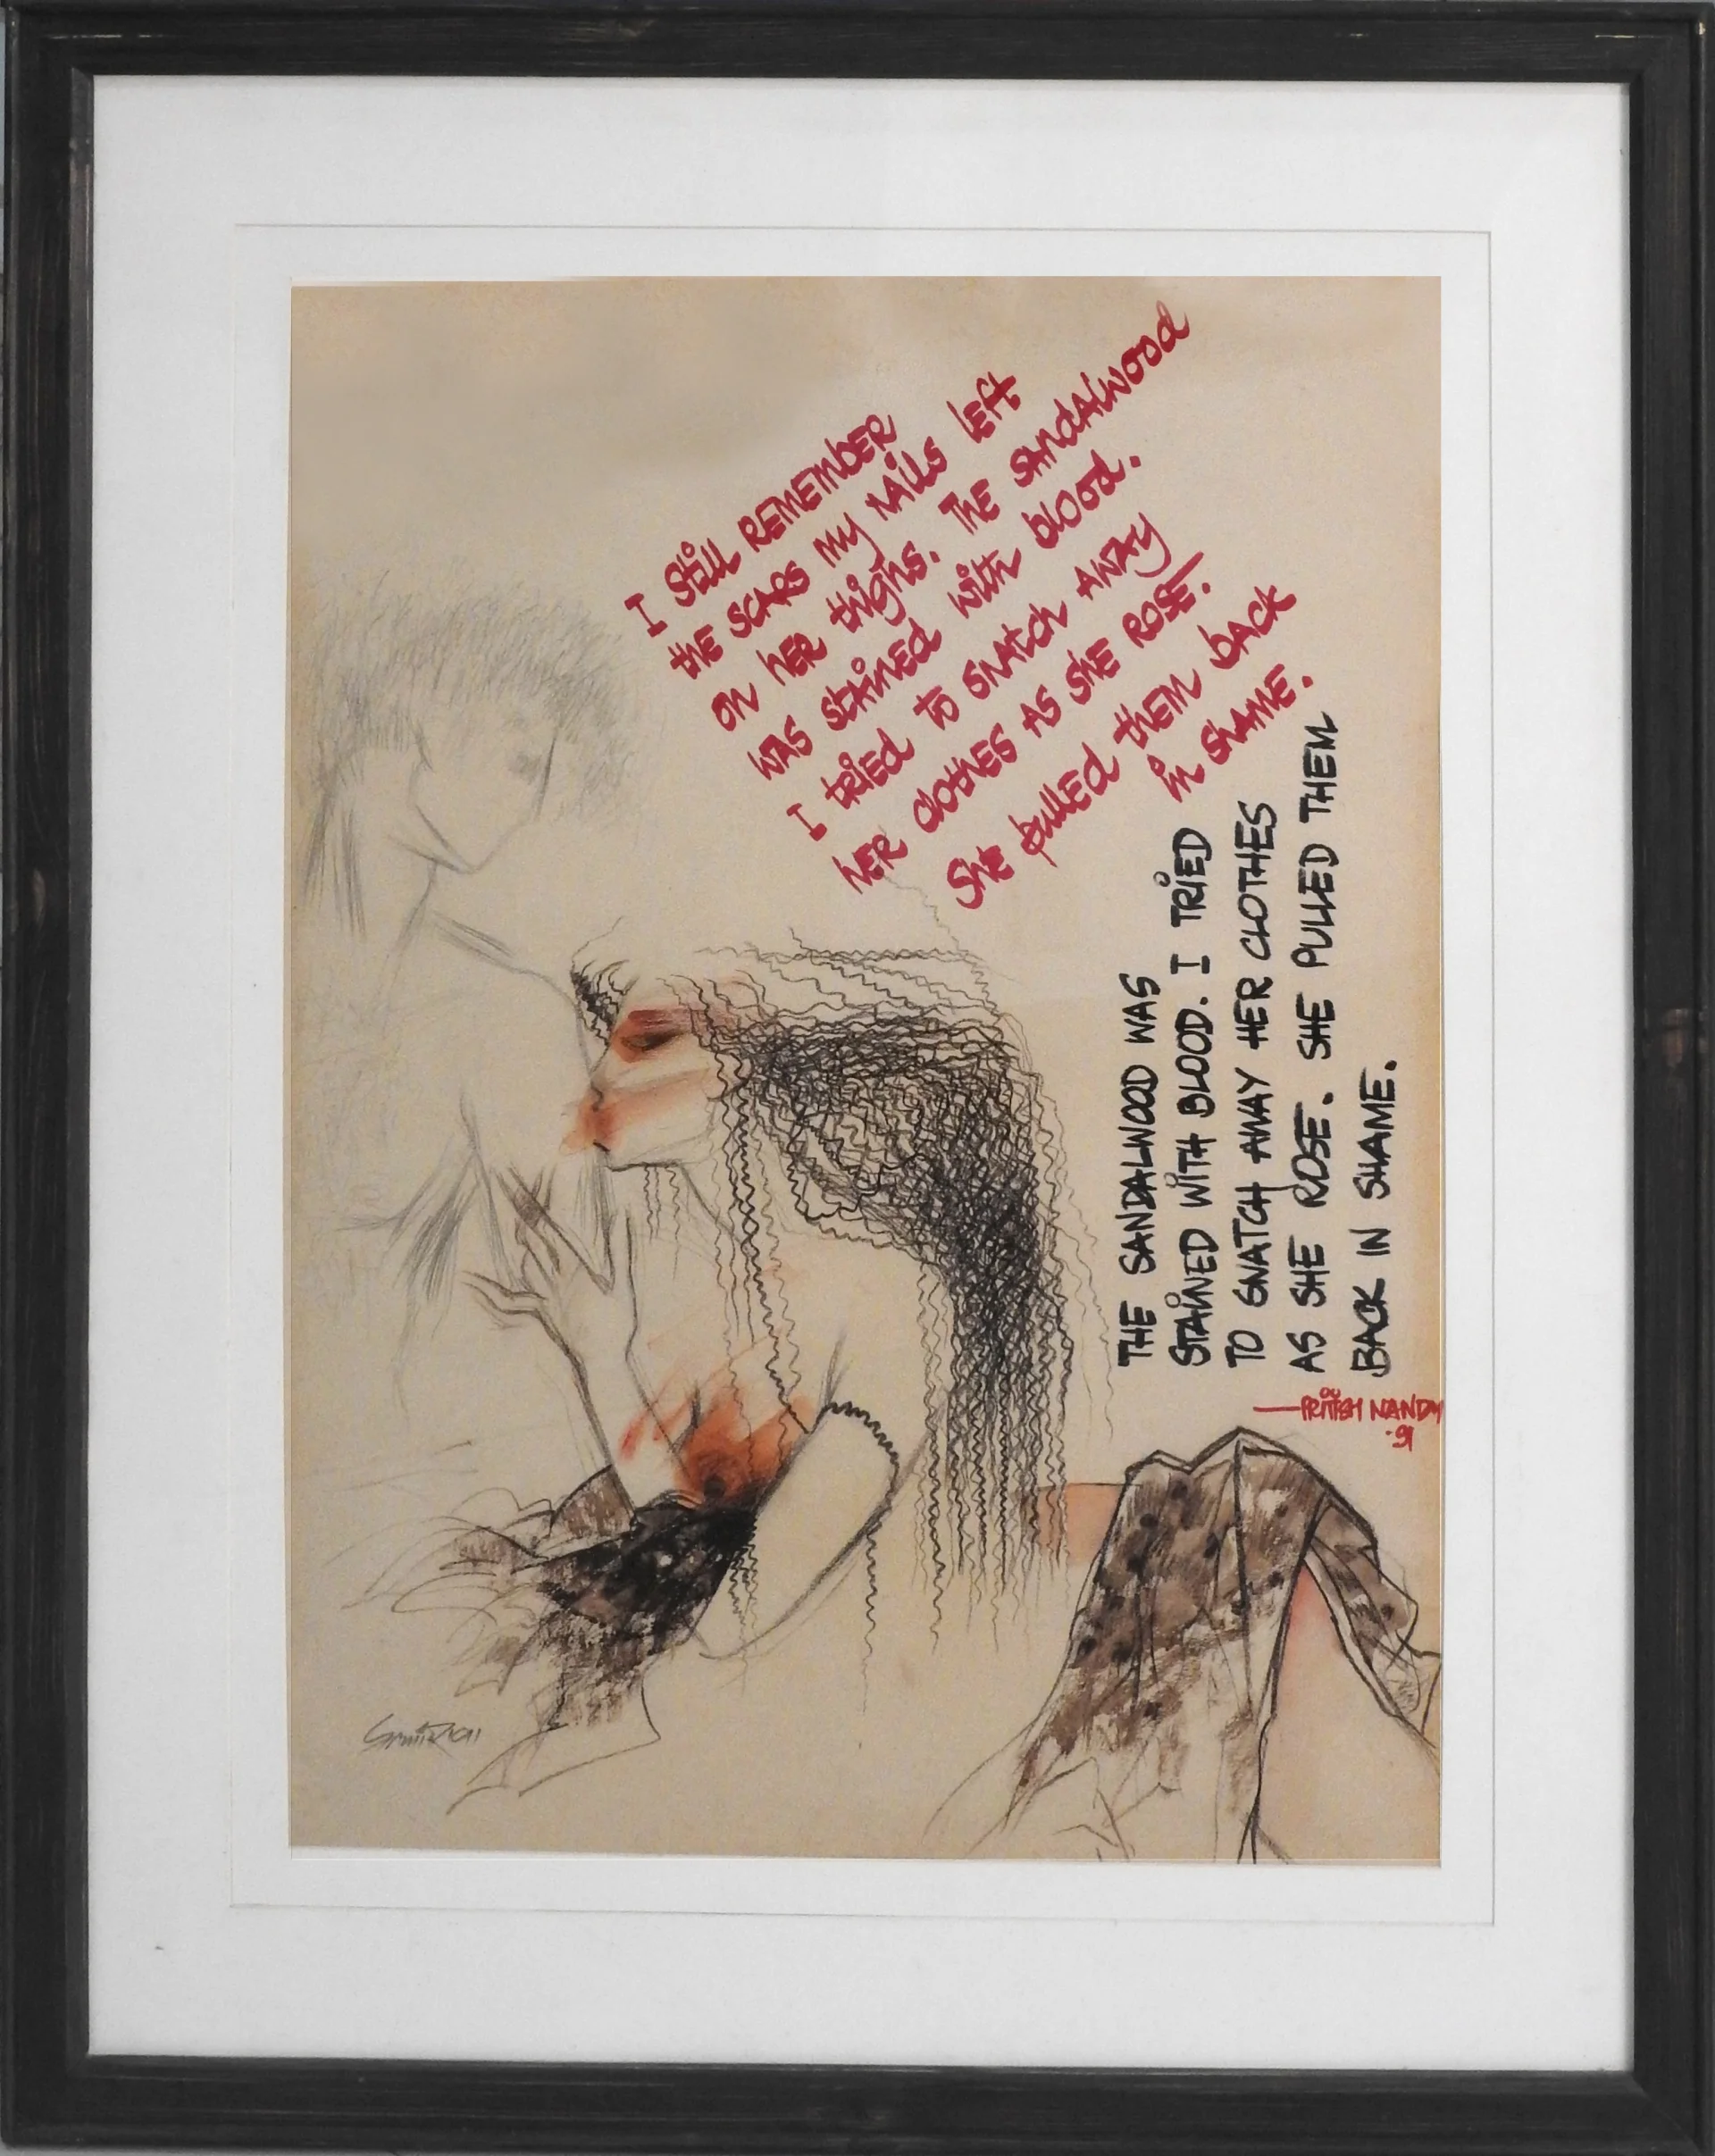 I still REMEMBER
the SCARS my NAils left
ON HER thighs. THE SANdAlwood
WAS StAiNEd with blood.
I tRiEd to SNAtch AWAy
HER clothES AS SHE ROSE.
SHE pullEd thEM bACK
in SHAME.
THE SANDALWOOD WAS
STAiNED WiTH BLOOD. I TRiED
TO SNATCH AWAY HER CLOTHES
AS SHE ROSE. SHE PULLED THEM
BACK IN SHAME.
—PRiTiSH NANDY
'91